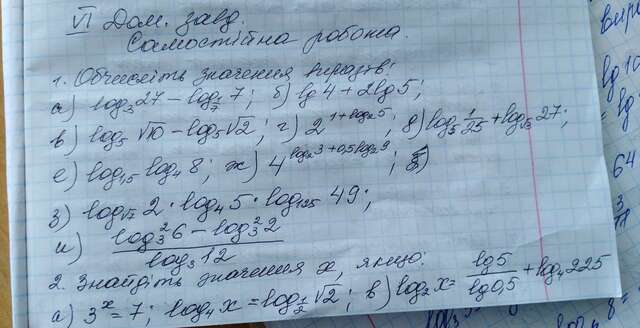 VI Дом. завд.
Самостійна робота.
1. Обчисліть значення виразів:
а) log₃27 − log_{1/7} 7; б) lg 4 + 2lg 5;
в) log₅ √10 − log₅√2; г) 2^{1+log₂5}; д) log₅ 1/25 + log_{√3} 27;
е) log_{1,5} log₄ 8; ж) 4^{log₂3+0,5log₂9};
з) log_{√7} 2 · log₄ 5 · log₁₂₅ 49;
и) (log₃²6 − log₃²2)/(log₃12)
2. Знайдіть значення x, якщо:
а) 3^x = 7; log₄x = log_{1/2} √2; в) log₂x = lg5/lg0,5 + log₄225